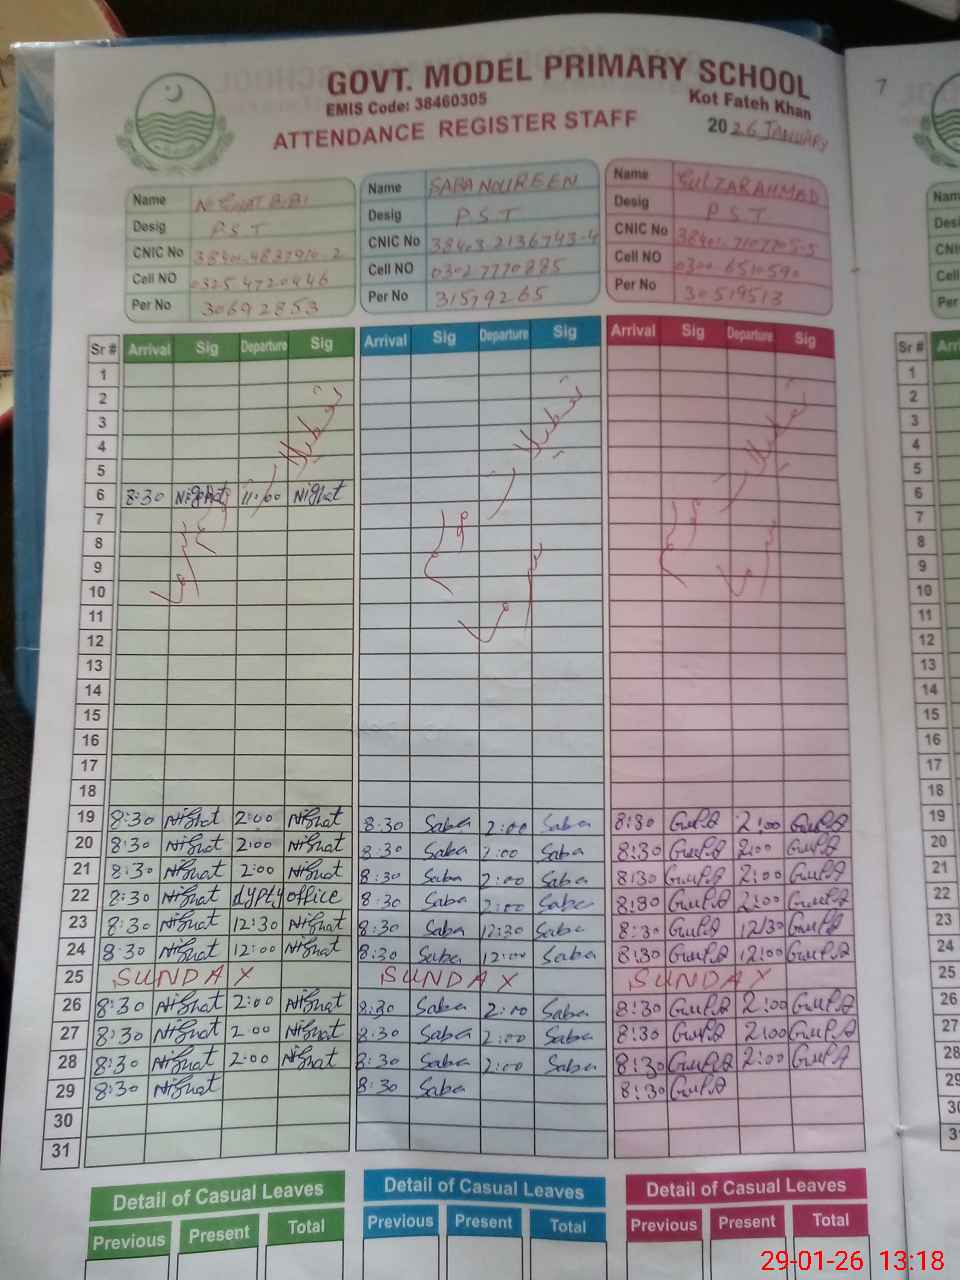 GOVT. MODEL PRIMARY SCHOOL
EMIS Code: 38460305
Kot Fateh Khan
ATTENDANCE REGISTER STAFF
2026 JANUARY
7
Name NIGHAT BIBI
Desig P.S.T
CNIC No
Cell NO 0325 4720446
Per No 30692853
Name SABA NOUREEN
Desig P.S.T
CNIC No 38403.2136743-4
Cell NO 0302 7770885
Per No 31579265
Name GULZAR AHMAD
Desig P S T
CNIC No
Cell NO 0300 6510590
Per No 30519513
Sr # Arrival Sig Departure Sig Arrival Sig Departure Sig Arrival Sig Departure Sig
1
2
3
4
5
6 8:30 Nighat 11:00 Nighat
7
8
9
10
11
12
13
14
15
16
17
18
19 8:30 Nighat 2:00 Nighat 8:30 Saba 2:00 Saba 8:30 2:00
20 8:30 Nighat 2:00 Nighat 8:30 Saba 2:00 Saba 8:30 2:00
21 8:30 Nighat 2:00 Nighat 8:30 Saba 2:00 Saba 8:30 2:00
22 8:30 Nighat dypty office 8:30 Saba 2:00 Saba 8:30 2:00
23 8:30 Nighat 12:30 Nighat 8:30 Saba 12:30 Saba 8:30 12:30
24 8:30 Nighat 12:00 Nighat 8:30 Saba 12:00 Saba 8:30 12:00
25 SUNDAY SUNDAY SUNDAY
26 8:30 Nighat 2:00 Nighat 8:30 Saba 2:00 Saba 8:30 2:00
27 8:30 Nighat 2:00 Nighat 8:30 Saba 2:00 Saba 8:30 2:00
28 8:30 Nighat 2:00 Nighat 8:30 Saba 2:00 Saba 8:30 2:00
29 8:30 Nighat 8:30 Saba 8:30
30
31
Detail of Casual Leaves Detail of Casual Leaves Detail of Casual Leaves
Previous Present Total Previous Present Total Previous Present Total
29-01-26 13:18